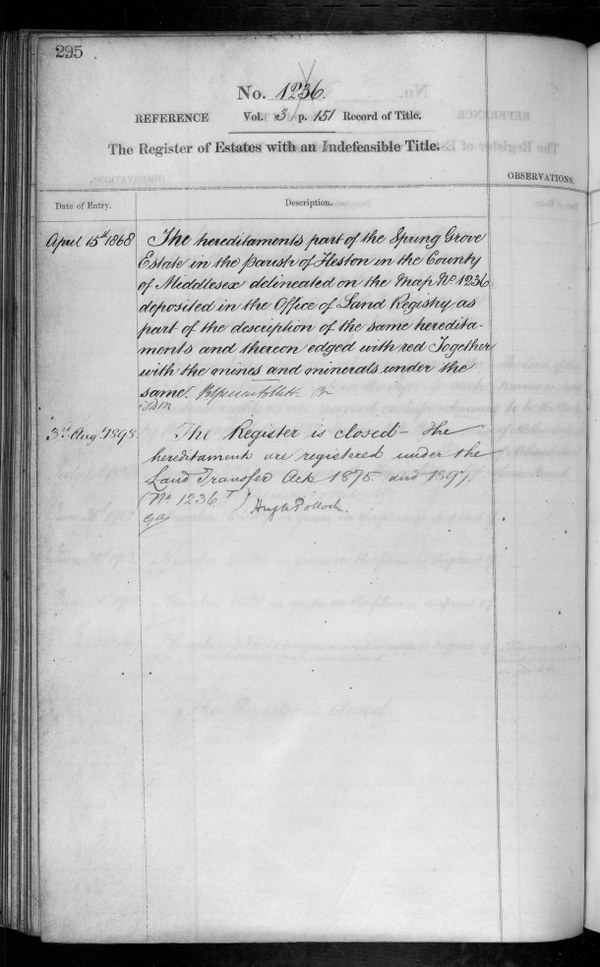 295
No. 1236.
REFERENCE Vol. 3 p. 151 Record of Title.
The Register of Estates with an Indefeasible Title.
OBSERVATIONS.
Date of Entry.
Description.
April 15th 1868
The hereditaments part of the Spring Grove
Estate in the Parish of Heston in the County
of Middlesex delineated on the Map No. 1236
deposited in the Office of Land Registry as
part of the description of the same heredita-
ments and thereon edged with red Together
with the mines and minerals under the
same.
3rd Augt. 1898.
The Register is closed - The
hereditaments are registered under the
Land Transfer Acts 1875 and 1897.
(No. 1236 T)
Hugh Pollock.